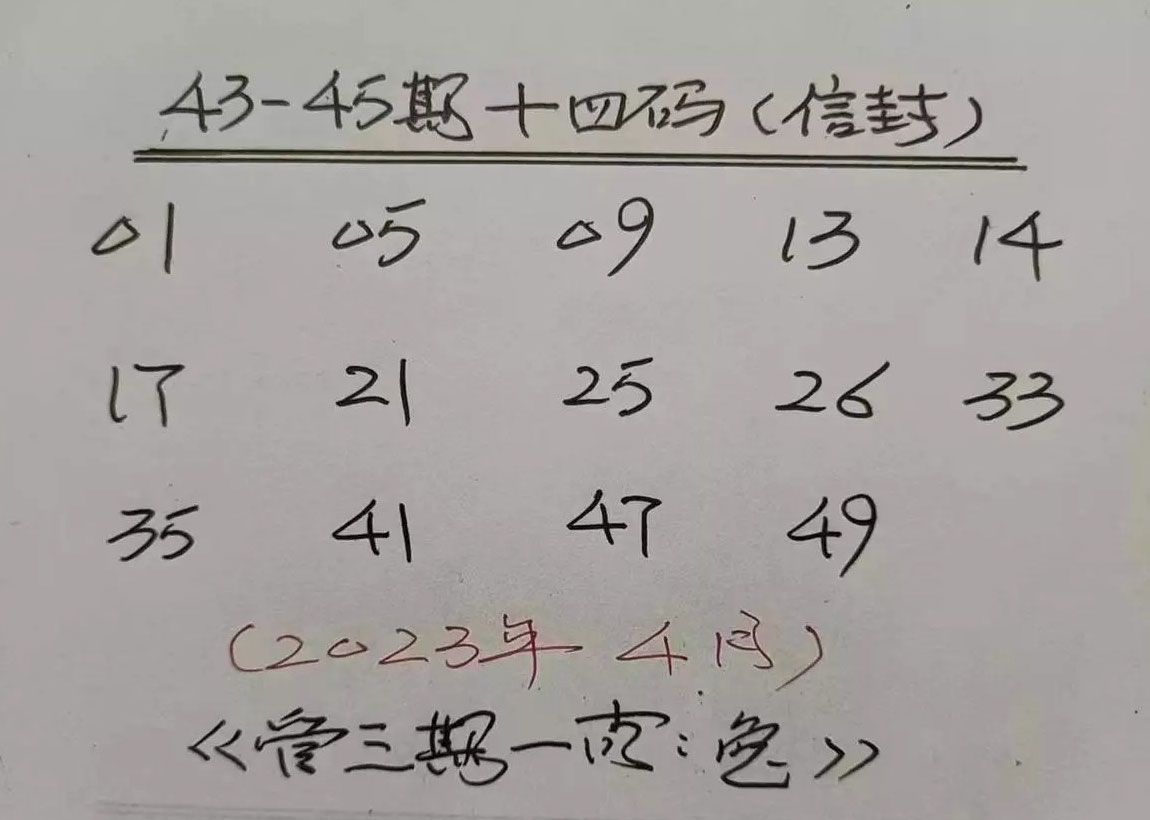 43-45期十四码(信封)
01 05 09 13 14
17 21 25 26 33
35 41 47 49
(2023年 4月)
《管三期一肖:兔》